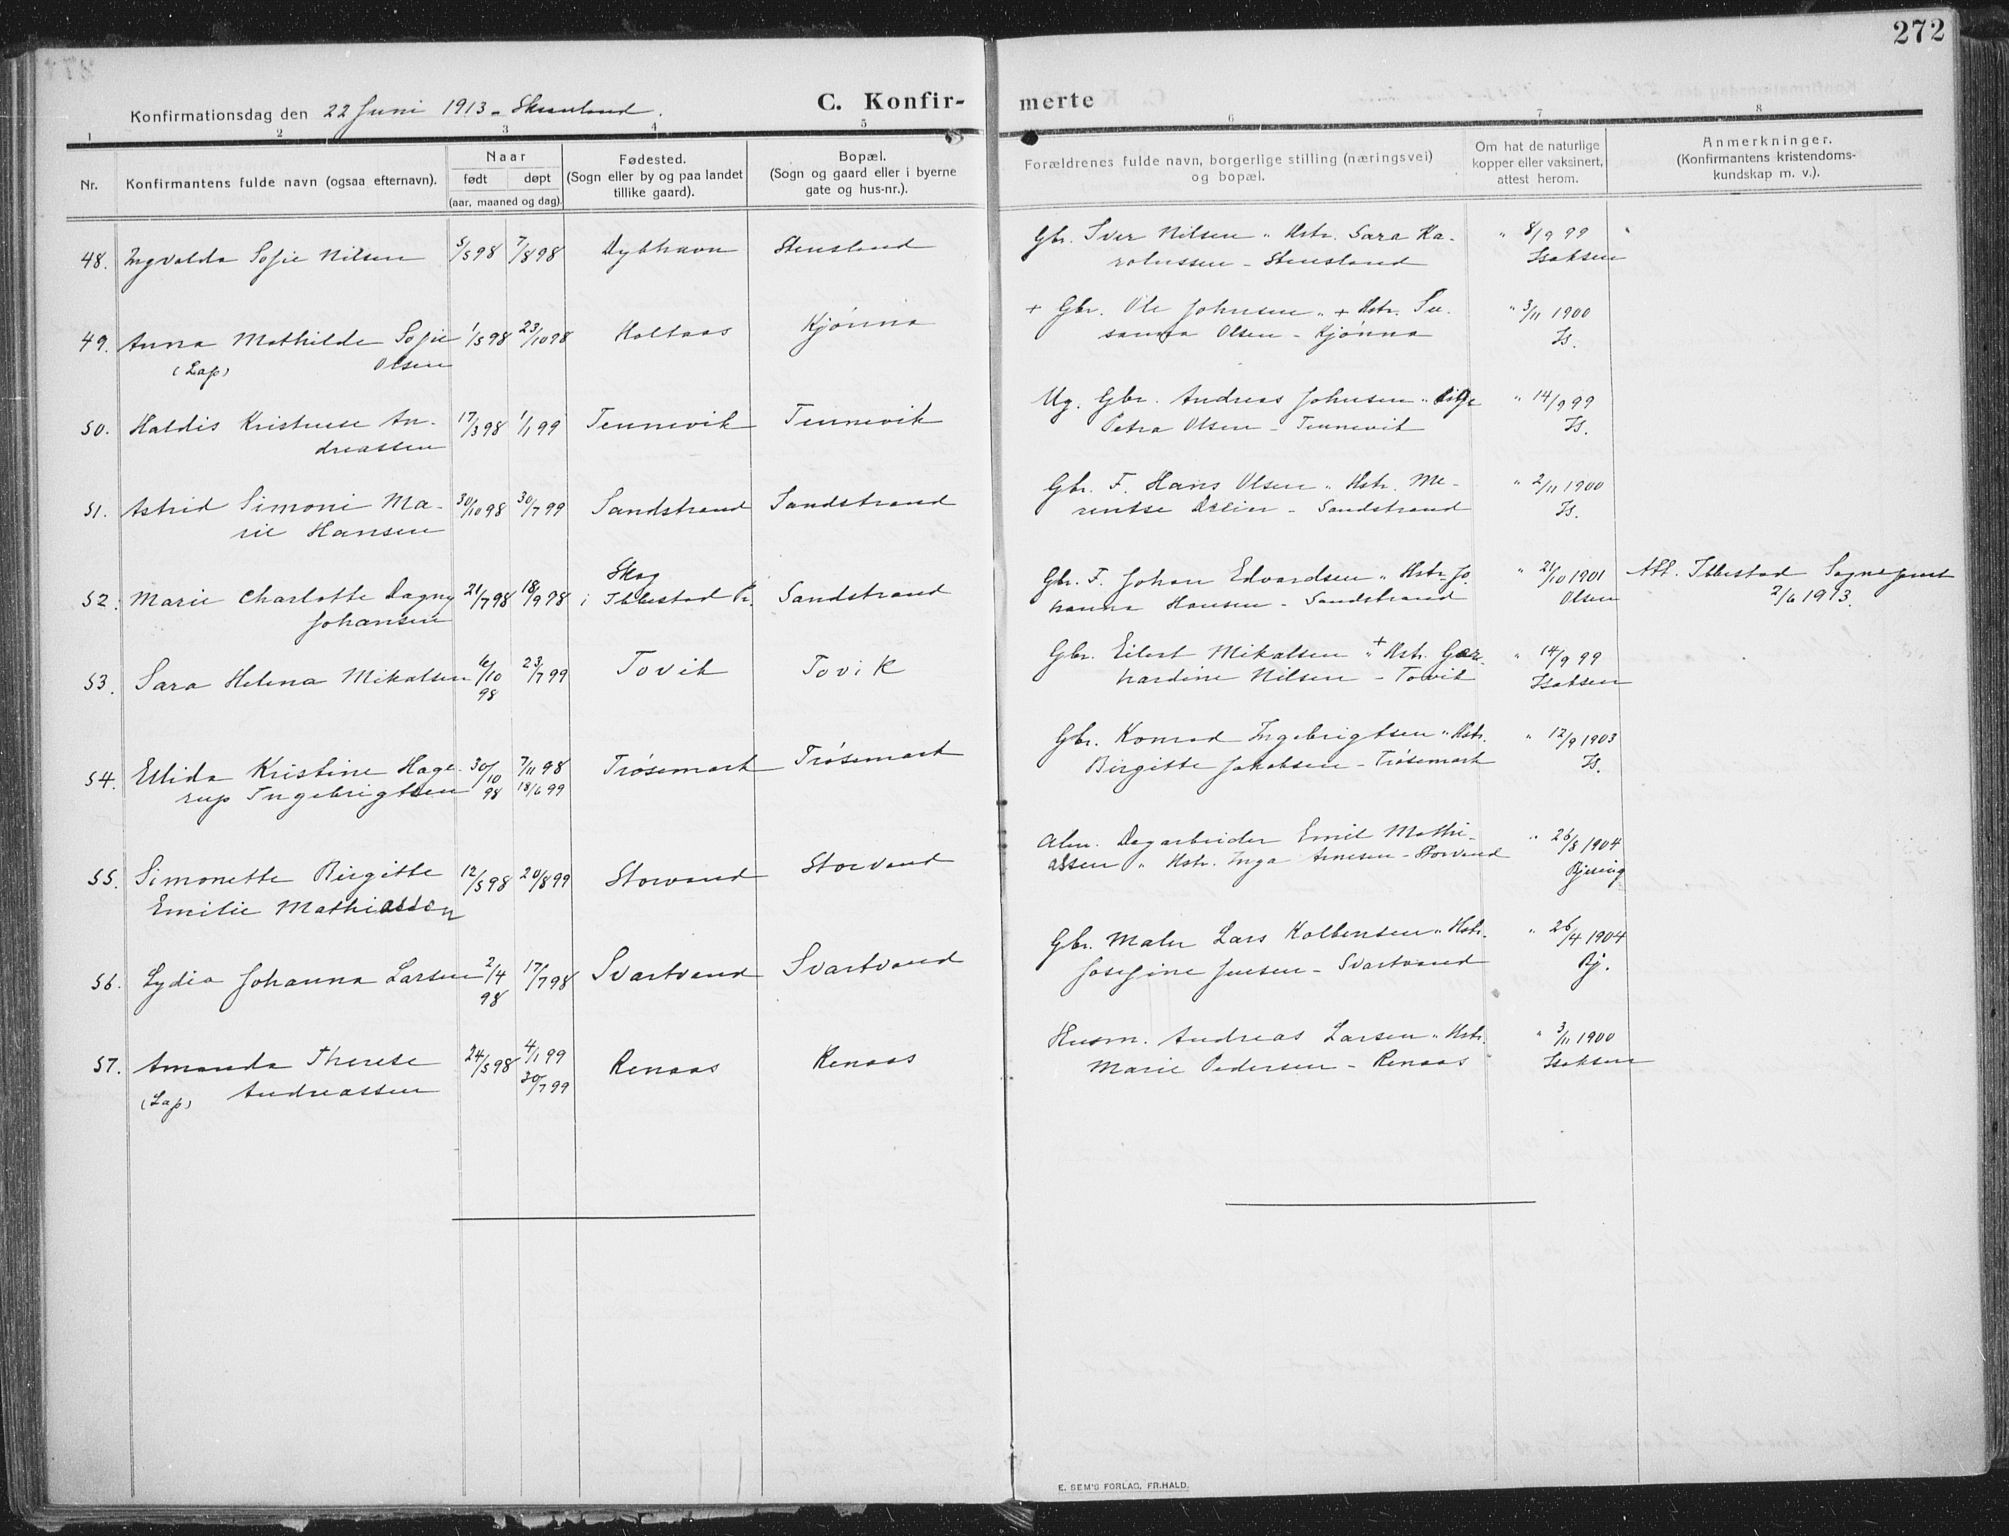 272
Konfirmationsdag den 22 Juni 1913 - Skaanland.
C. Konfir-
merte
1 2 3 4 5 6 7 8
Nr.
Konfirmantens fulde navn (ogsaa efternavn).
Naar
født døpt
(aar, maaned og dag).
Fødested.
(Sogn eller by og paa landet
tillike gaard).
Bopæl.
(Sogn og gaard eller i byerne
gate og hus-nr.).
Forældrenes fulde navn, borgerlige stilling (næringsvei)
og bopæl.
Om hat de naturlige
kopper eller vaksinert,
attest herom.
Anmerkninger.
(Konfirmantens kristendoms-
kundskap m. v.).
48. Ingvalda Sofie Nilsen 5/5 98 7/8 98 Dybhavn Stensland Gbr. Iver Nilsen " Hstr. Sara Ka- " 8/9 99 "
rolussen - Stensland Isaksen
49. Anna Mathilde Sofie 1/5 98 23/10 98 Holtaas Kjønna + Gbr. Ole Johnsen " + Hstr. Su- " 3/11 1900
(Lap) Olsen sanna Olsen - Kjønna Is.
50. Haldis Kristense An- 17/3 98 1/1 99 Tennevik Tennevik Ug. Gbr. Andreas Johnsen " Pige " 14/9 99
dreassen Petra Olsen - Tennevik Is.
51. Astrid Simoni Ma- 30/10 98 30/7 99 Sandstrand Sandstrand Gbr. F. Hans Olsen " Hstr. Me- " 2/11 1900
rie Hansen rentse - Sandstrand Is.
52. Marie Charlotte Dagny 21/7 98 18/9 98 Skog Sandstrand Gbr. F. Johan Edvardsen " Hstr. Jo- " 21/10 1901 Att. Ibbestad Sogneprest
Johansen i Ibbestad Pr. hanna Hansen - Sandstrand Olsen 2/6 1913.
53. Sara Helena Mikalsen 6/10 98 23/7 99 Tovik Tovik Gbr. Eilert Mikalsen " + Hstr. Ger- " 14/9 99
hardine Nilsen - Tovik Isaksen
54. Ellida Kristine Hage- 30/10 98 7/11 98 Trøsemark Trøsemark Gbr. Konrad Ingebrigtsen " Hstr. " 12/9 1903
rup Ingebrigtsen 18/6 99 Birgitte Jakobsen - Trøsemark Is.
55. Simonette Birgitte 12/5 98 20/8 99 Storvand Storvand Alm. Dagarbeider Emil Mathi- " 26/8 1904
Emilie Mathiassen assen " Hstr. Inga Arnesen - Storvand
56. Lydia Johanna Larsen 2/4 98 17/7 98 Svartvand Svartvand Gbr. Maler Lars Kolbensen " Hstr. " 26/4 1904
Josefine Jensen - Svartvand Bj.
57. Amanda Therese 24/5 98 4/1 99 Renaas Renaas Husm. Andreas Larsen " Hstr. " 3/11 1900
(Lap) Andreassen 30/7 99 Marie Pedersen - Renaas Isaksen
E. SEM'S FORLAG, FR.HALD.